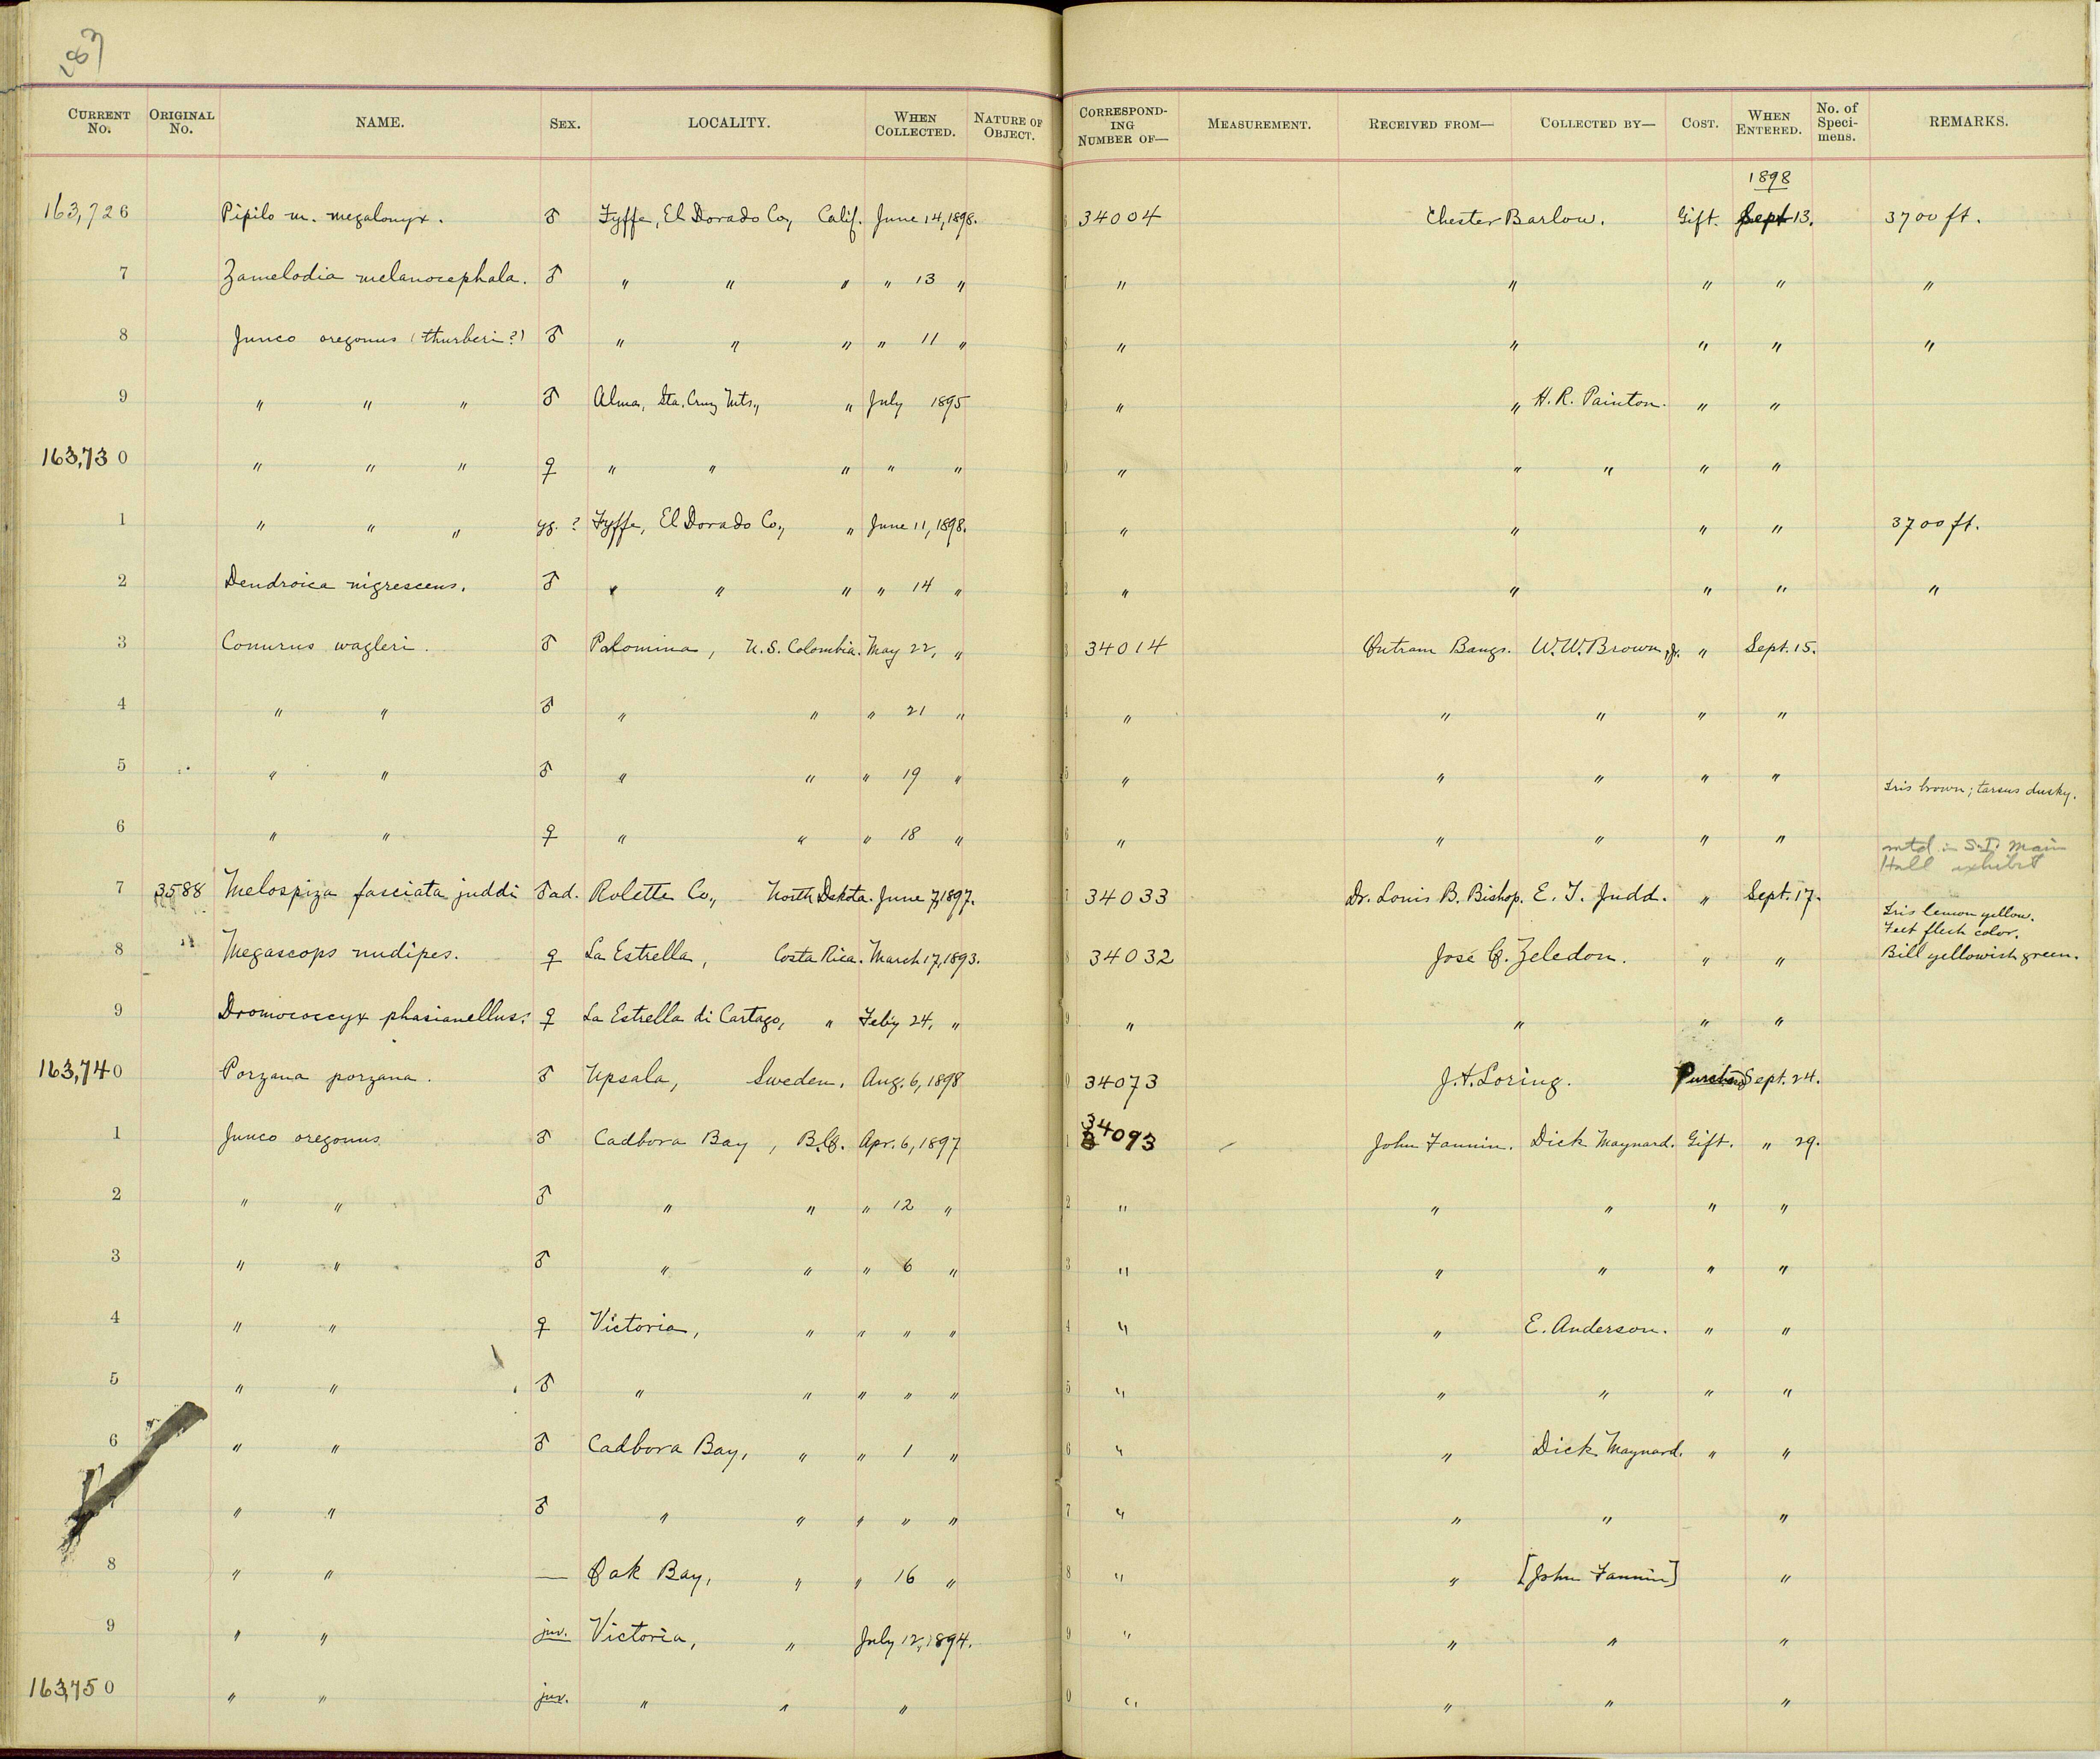 187
CURRENT No. ORIGINAL No. NAME. SEX. LOCALITY. WHEN COLLECTED. NATURE OF OBJECT. CORRESPONDING NUMBER OF— MEASUREMENT. RECEIVED FROM— COLLECTED BY— COST. WHEN ENTERED. No. of Speci-mens. REMARKS.
1898
163,726 Pipilo m. megalonyx. ♂ Fyffe, El Dorado Co., Calif. June 14, 1898. 6 34004 Chester Barlow. Gift. Sept 13. 3700 ft.
7 Zamelodia melanocephala. ♂ " " " " 13 " 7 " " " " "
8 Junco oregonus (thurberi?) ♂ " " " " 11 " 8 " " " " "
9 " " " ♂ Alma, Sta. Cruz Mts., " July 1895 9 " " H. R. Painton. " "
163,730 " " " ♀ " " " " " 0 " " " " "
1 " " " yg. ? Fyffe, El Dorado Co., " June 11, 1898. 1 " " " " 3700 ft.
2 Dendroica nigrescens. ♂ " " " " 14 " 2 " " " " "
3 Conurus wagleri. ♂ Palomina, U.S. Colombia. May 22, " 3 34014 Outram Bangs. W. W. Brown, Jr. " Sept. 15.
4 " " ♂ " " " 21 " 4 " " " " "
5 " " ♂ " " " 19 " 5 " " " " "
Iris brown; tarsus dusky.
6 " " ♀ " " " 18 " 6 " " " " "
mtd in S.I. Main
Hall exhibit
7 3588 Melospiza fasciata juddi ♂ ad. Rolette Co., North Dakota. June 7, 1897. 7 34033 Dr. Louis B. Bishop. E. T. Judd. " Sept. 17.
Iris lemon yellow.
Feet flesh color.
8 Megascops nudipes. ♀ La Estrella, Costa Rica. March 17, 1893. 8 34032 José C. Zeledon. " " Bill yellowish green.
9 Dromococcyx phasianellus. ♀ La Estrella di Cartago, " Feby 24, " 9 " " " "
163,740 Porzana porzana. ♂ Upsala, Sweden. Aug. 6, 1898 0 34073 J. A. Loring. Purchase Sept. 24.
1 Junco oregonus ♂ Cadbora Bay, B.C. Apr. 6, 1897 1 34093 John Fannin. Dick Maynard. Gift. " 29.
2 " " ♂ " " " 12 " 2 " " " " "
3 " " ♂ " " " 6 " 3 " " " " "
4 " " ♀ Victoria, " " " " 4 " " E. Anderson. " "
5 " " ♂ " " " " " 5 " " " " "
6 " " ♂ Cadbora Bay, " " 1 " 6 " " Dick Maynard. " "
7 " " ♂ " " " " " 7 " " " "
8 " " — Oak Bay, " " 16 " 8 " " [John Fannin] "
9 " " juv. Victoria, " July 12, 1894. 9 " " " "
163,750 " " juv. " " " 0 " " " "